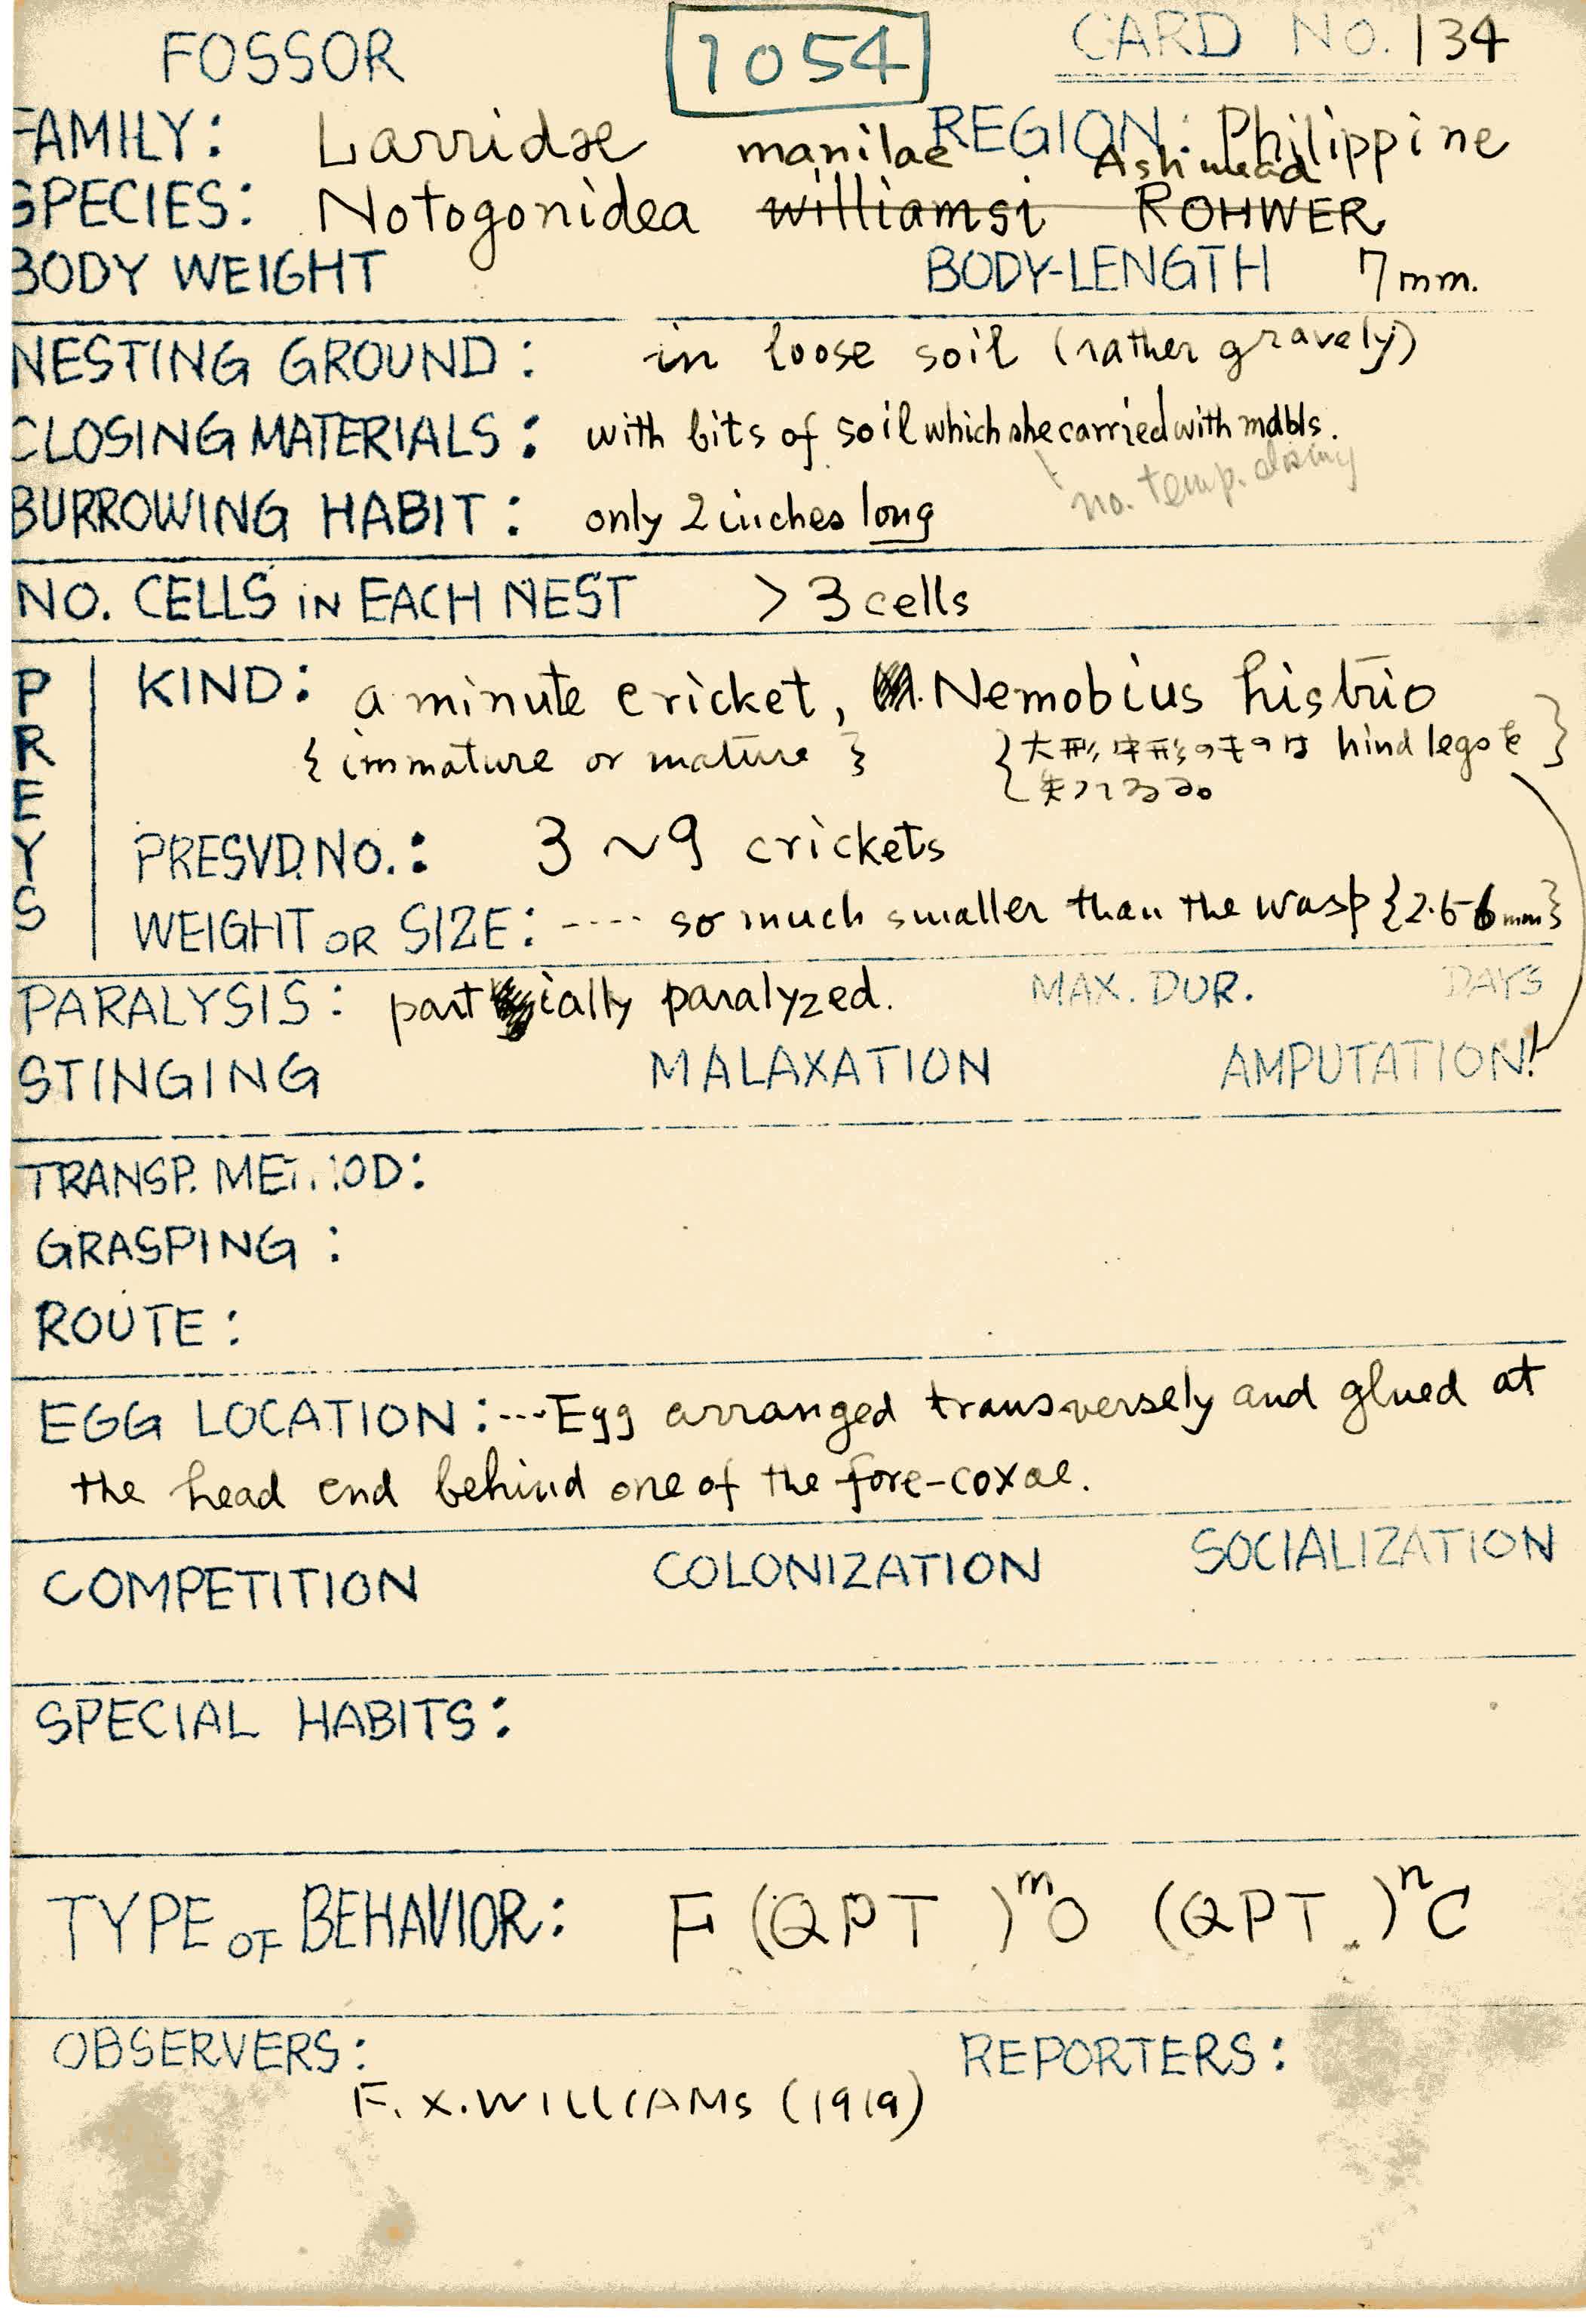 FOSSOR 1054 CARD NO. 134
FAMILY: Larridae REGION: Philippine
manilae Ashmead
SPECIES: Notogonidea williamsi ROHWER
BODY WEIGHT BODY-LENGTH 7mm.
NESTING GROUND: in loose soil (rather gravely)
CLOSING MATERIALS: with bits of soil which she carried with mdbls.
no. temp. closing
BURROWING HABIT: only 2 inches long
NO. CELLS IN EACH NEST > 3 cells
PREYS
KIND: a minute cricket, Nemobius histrio
{immature or mature} {大形、中形のものは hind legs を
失ってゐる。}
PRESVD. NO.: 3 ~ 9 crickets
WEIGHT OR SIZE: ---- so much smaller than the wasp {2.5-6mm}
PARALYSIS: partially paralyzed. MAX. DUR. DAYS
STINGING MALAXATION AMPUTATION!
TRANSP. METHOD:
GRASPING:
ROUTE:
EGG LOCATION: ---Egg arranged transversely and glued at
the head end behind one of the fore-coxae.
COMPETITION COLONIZATION SOCIALIZATION
SPECIAL HABITS:
TYPE OF BEHAVIOR: F (QPT )ᵐO (QPT )ⁿC
OBSERVERS: REPORTERS:
F. X. WILLIAMS (1919)